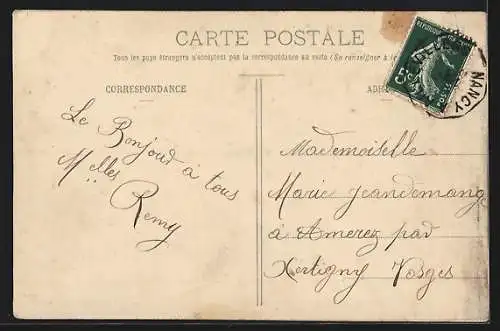 CARTE POSTALE
Tous les pays étrangers n'acceptent pas la correspondance au recto (Se renseigner à
CORRESPONDANCE
ADR
NANCY
Le Bonjour à tous
Melles Remy
Mademoiselle
Marie Jeandemange
à Amerey par
Xertigny Vosges